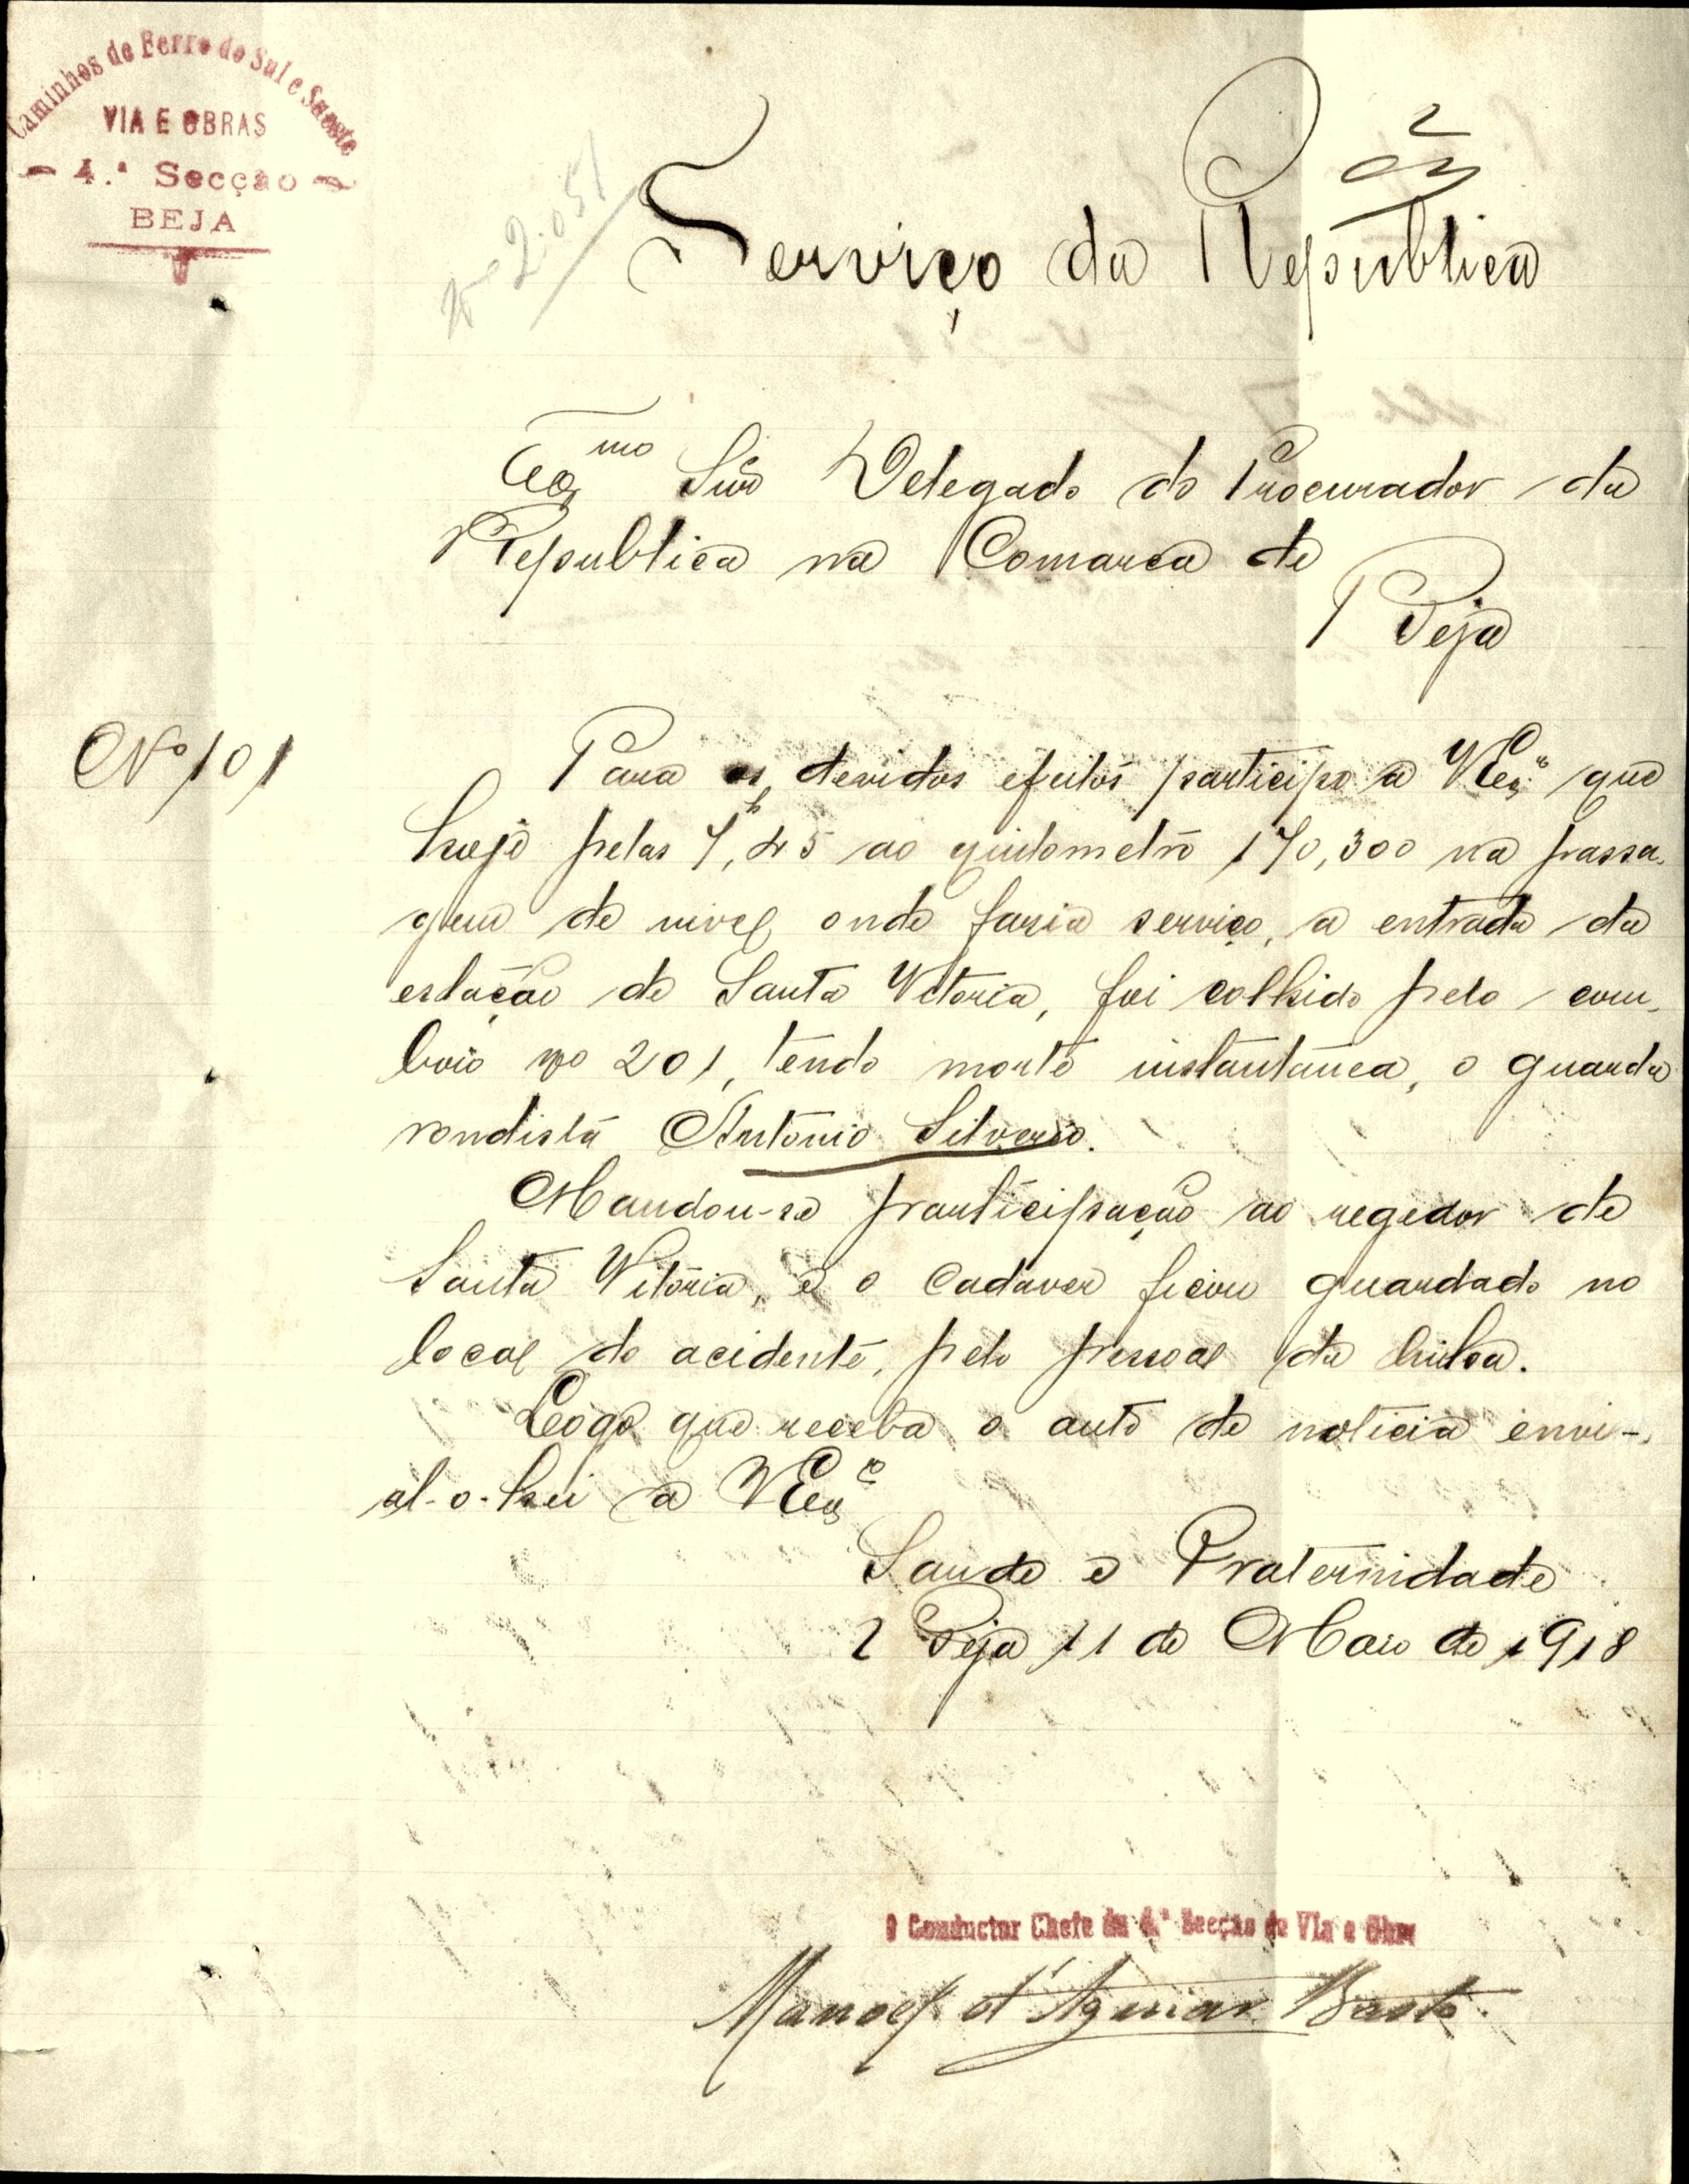 Caminhos de Ferro do Sul e Sueste
VIA E OBRAS
4.ª Secção
BEJA
2.051
2
Serviço da Republica
Exmo Snr Delegado do Procurador da
Republica na Comarca de
Beja
Nº 101
Para os devidos efeitos participo a V Exª que
hoje pelas 7h,45 ao quilometro 170,300 na passa-
gem de nivel onde fazia serviço, a entrada da
estação de Santa Vitoria, foi colhido pelo com-
boio nº 201, tendo morte instantanea, o guarda
rondista Antonio Silverio.
Mandou-se participação ao regedor de
Santa Vitória, e o cadaver ficou guardado no
local do acidente, pelo pessoal da linha.
Logo que receba o auto de noticia envi-
al-o-hei a V Exª
Saude e Fraternidade
Beja 11 de Maio de 1918
O Conductor Chefe da 4.ª Secção de Via e Obras
Manoel d'Aguiar Basto